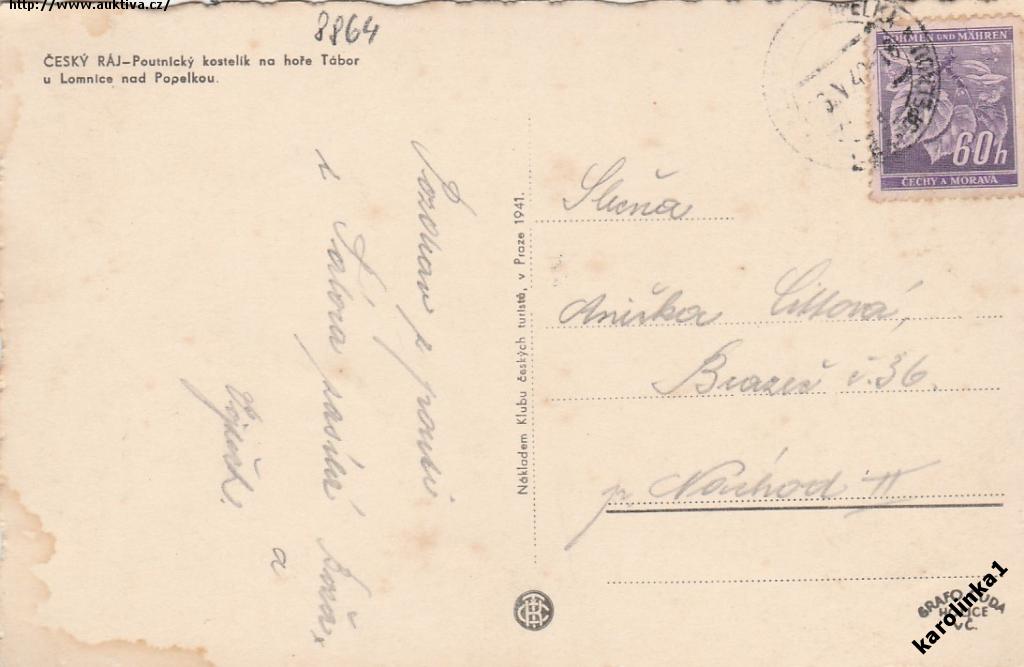 http://www.auktiva.cz/
8864
ČESKÝ RÁJ–Poutnický kostelík na hoře Tábor
u Lomnice nad Popelkou.
BÖHMEN UND MÄHREN
60h
ČECHY A MORAVA
Pozdrav z pouti
z Tábora zasílá
a
Nákladem Klubu českých turistů, v Praze 1941.
Slečna
Anička
č. 36.
p. Náchod II
GRAFO
HOLICE
v Č.
karolinka1